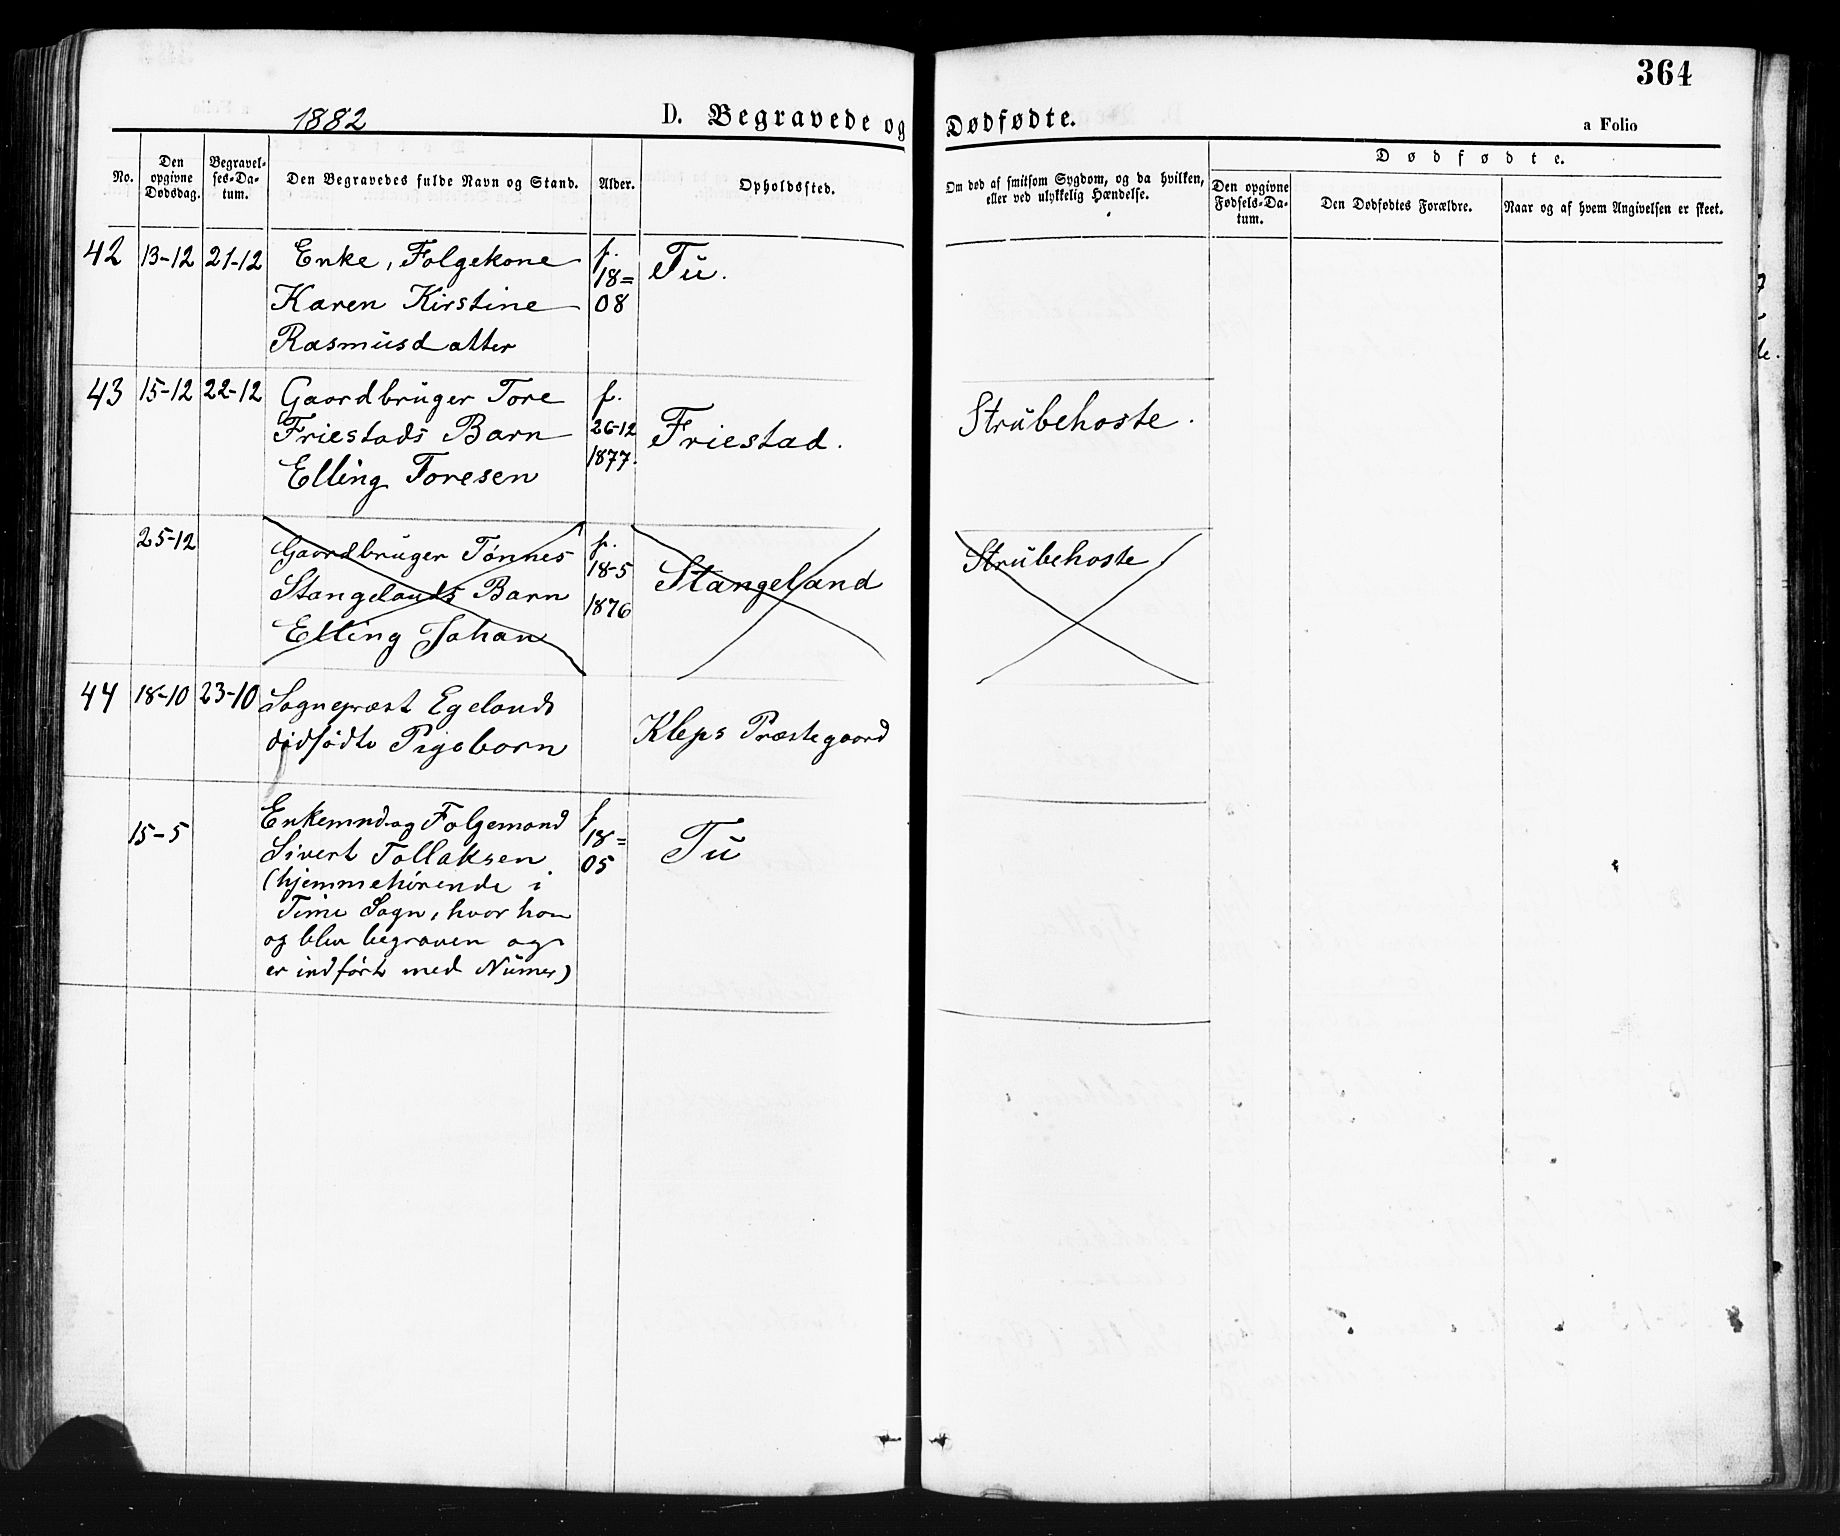 364
1882 D. Begravede og Dødfødte. a Folio
No.
Den opgivne Dødsdag.
Begravelses-Datum.
Den Begravedes fulde Navn og Stand.
Alder.
Opholdssted.
Om død af smitsom Sygdom, og da hvilken,
eller ved ulykkelig Hændelse.
Dødfødte.
Den opgivne Fødsels-Datum.
Den Dødfødtes Forældre.
Naar og af hvem Angivelsen er skeet.
42 13-12 21-12 Enke, Folgekone f. Tu.
Karen Kirstine 18=
Rasmusdatter 08
43 15-12 22-12 Gaardbruger Tore f.
Friestads Barn 26-12 Friestad. Strubehoste.
Elling Toresen 1877.
25-12 Gaardbruger Tønnes f. Strubehoste
Stangelands Barn 18-5 Stangeland
Elling Johan 1876
44 18-10 23-10 Sognepræst Egelands
dødfødte Pigebarn Kleps Præstegaard
15-5 Enkemand og Folgemand f
Sivert Tollaksen 18= Tu
(hjemmehørende i 05
Time Sogn, hvor han
og blev begraven og
er indført med Numer)